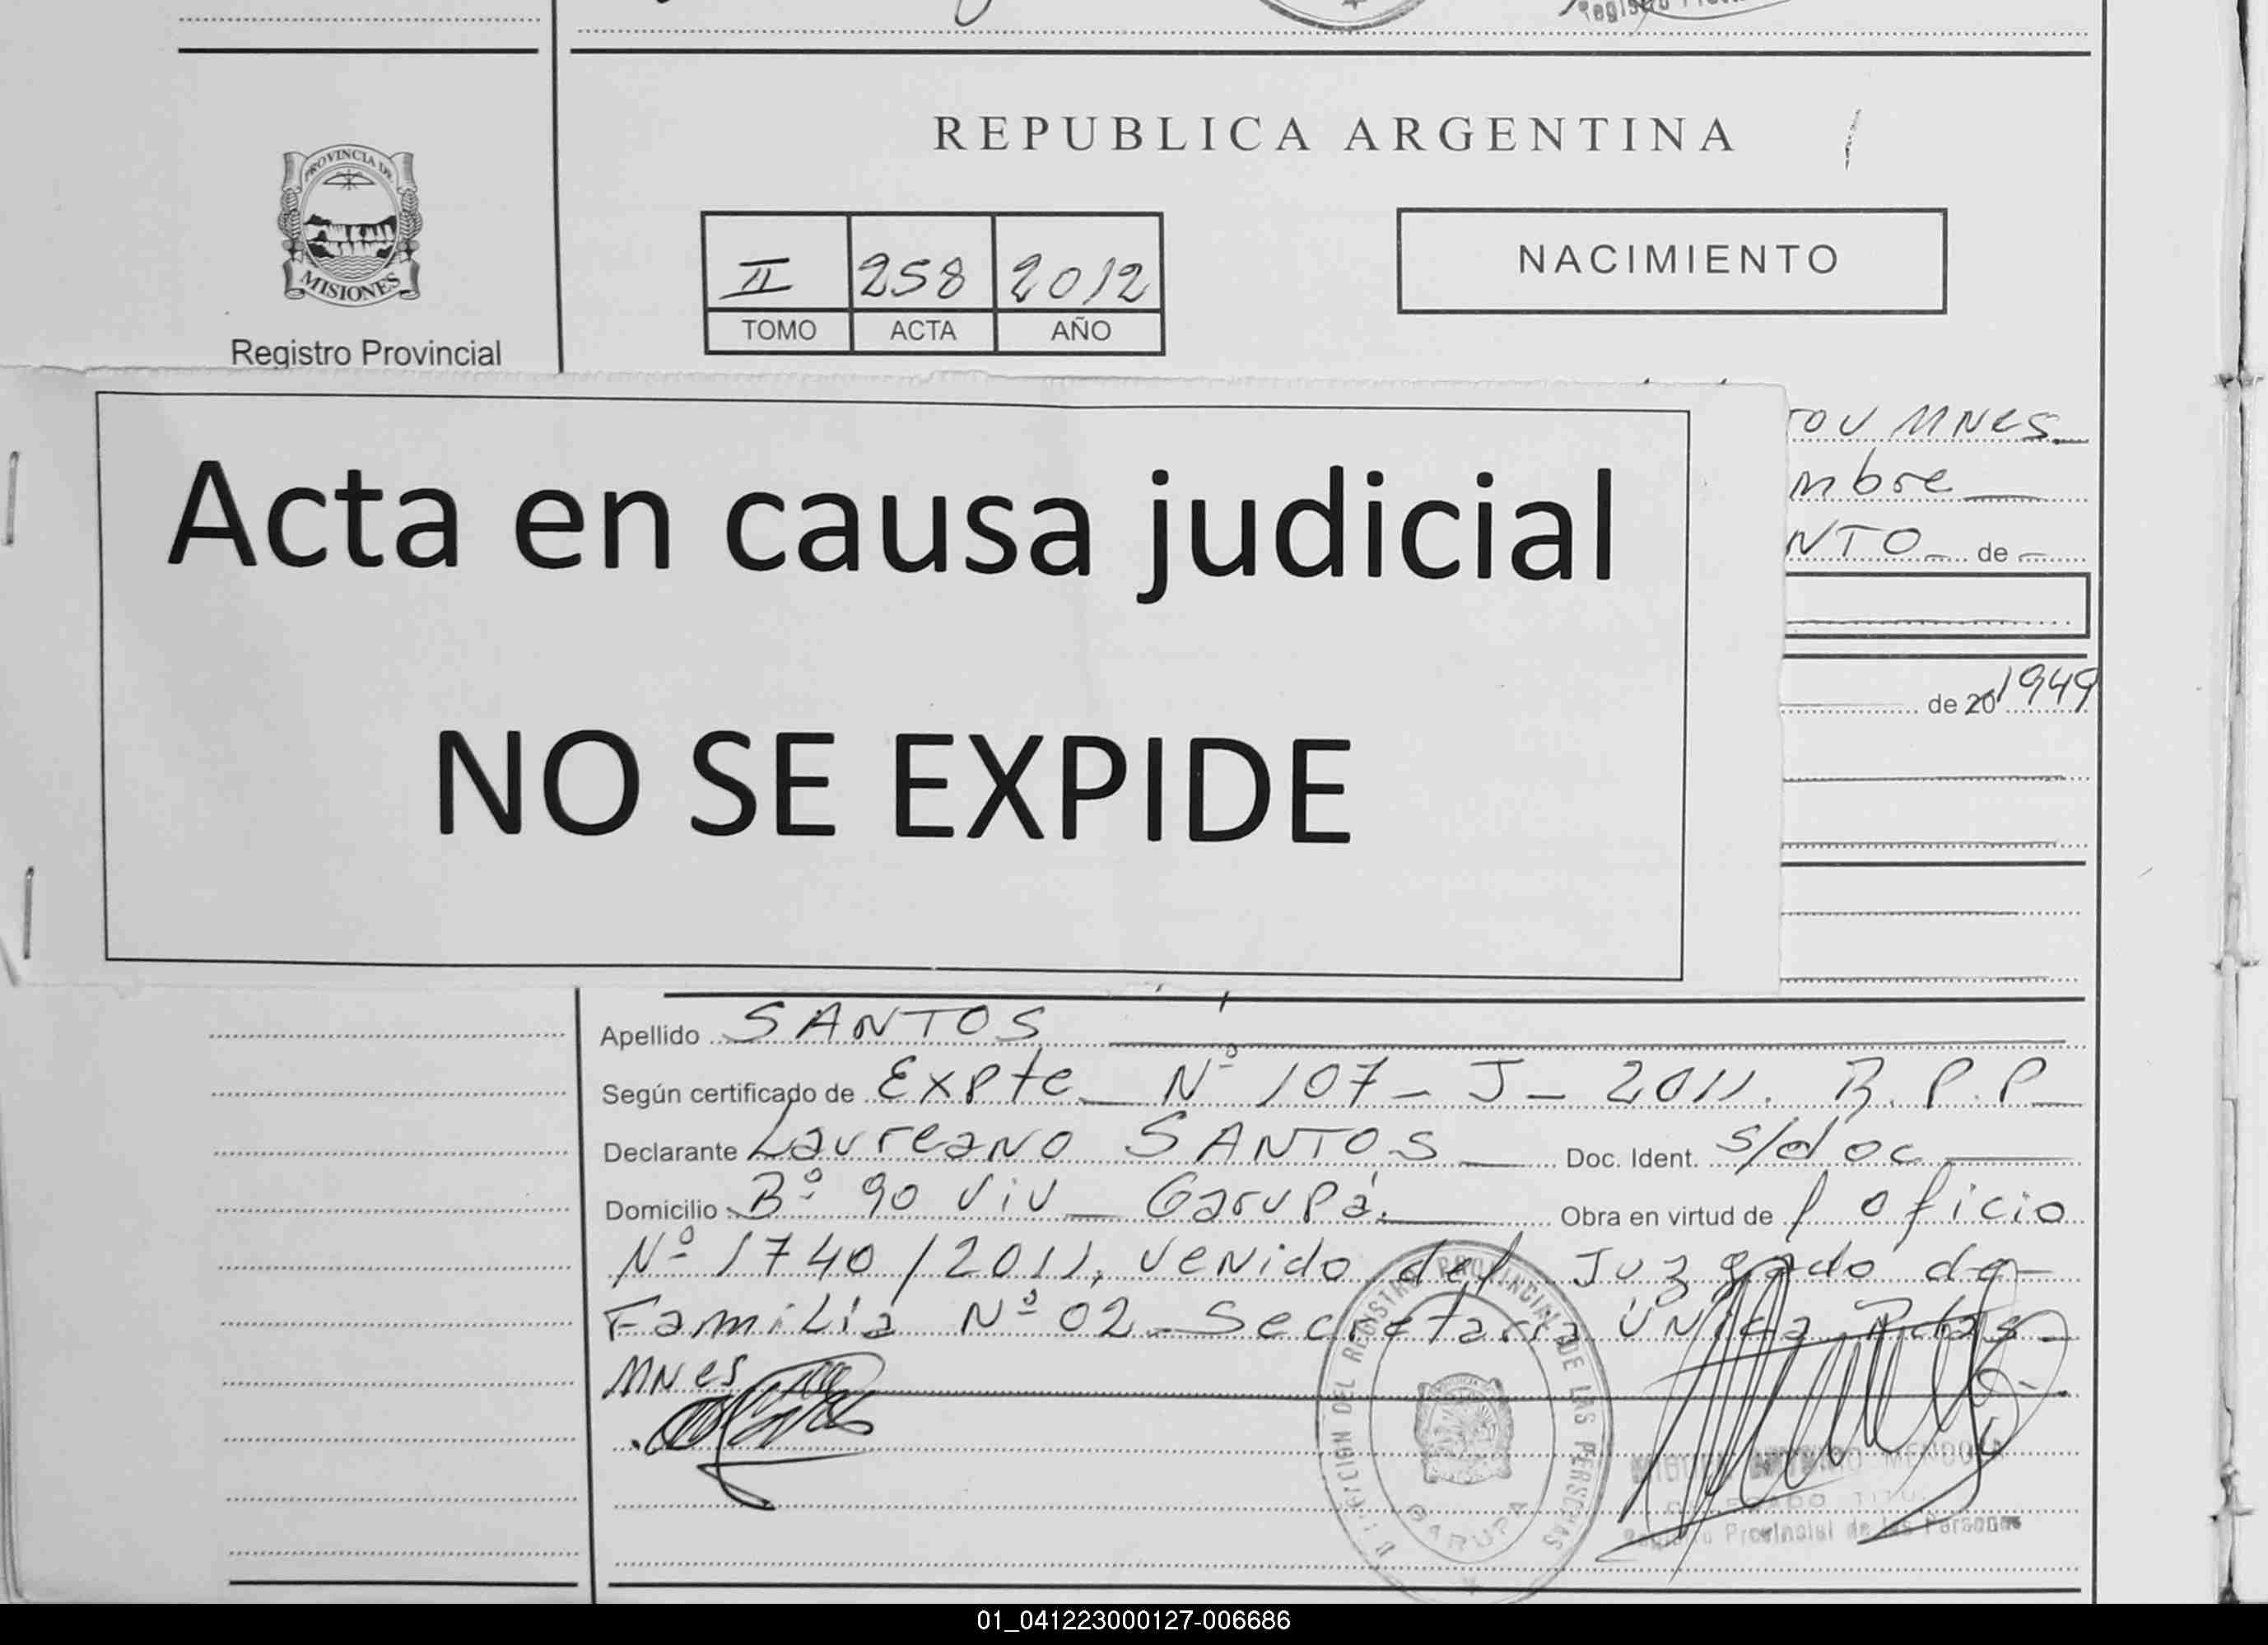 REPUBLICA ARGENTINA
PROVINCIA DE
MISIONES
Registro Provincial
II 258 2012
TOMO ACTA AÑO
NACIMIENTO
Acta en causa judicial
NO SE EXPIDE
MNes
mbre
NTO de
de 20 1949
Apellido SANTOS
Según certificado de Expte Nº 107 - J - 2011. R.P.P
Declarante Laureano SANTOS Doc. Ident. s/doc
Domicilio Bº 90 Viv Garupá. Obra en virtud de / oficio
Nº 1740/2011, venido del Juzgado de
Familia Nº 02 - Secretaria Unica Pdas
MNes
DEL REGISTRO PROVINCIAL DE LAS PERSONAS
GARUPA
MENDOZA
Provincial de las Personas
01_041223000127-006686